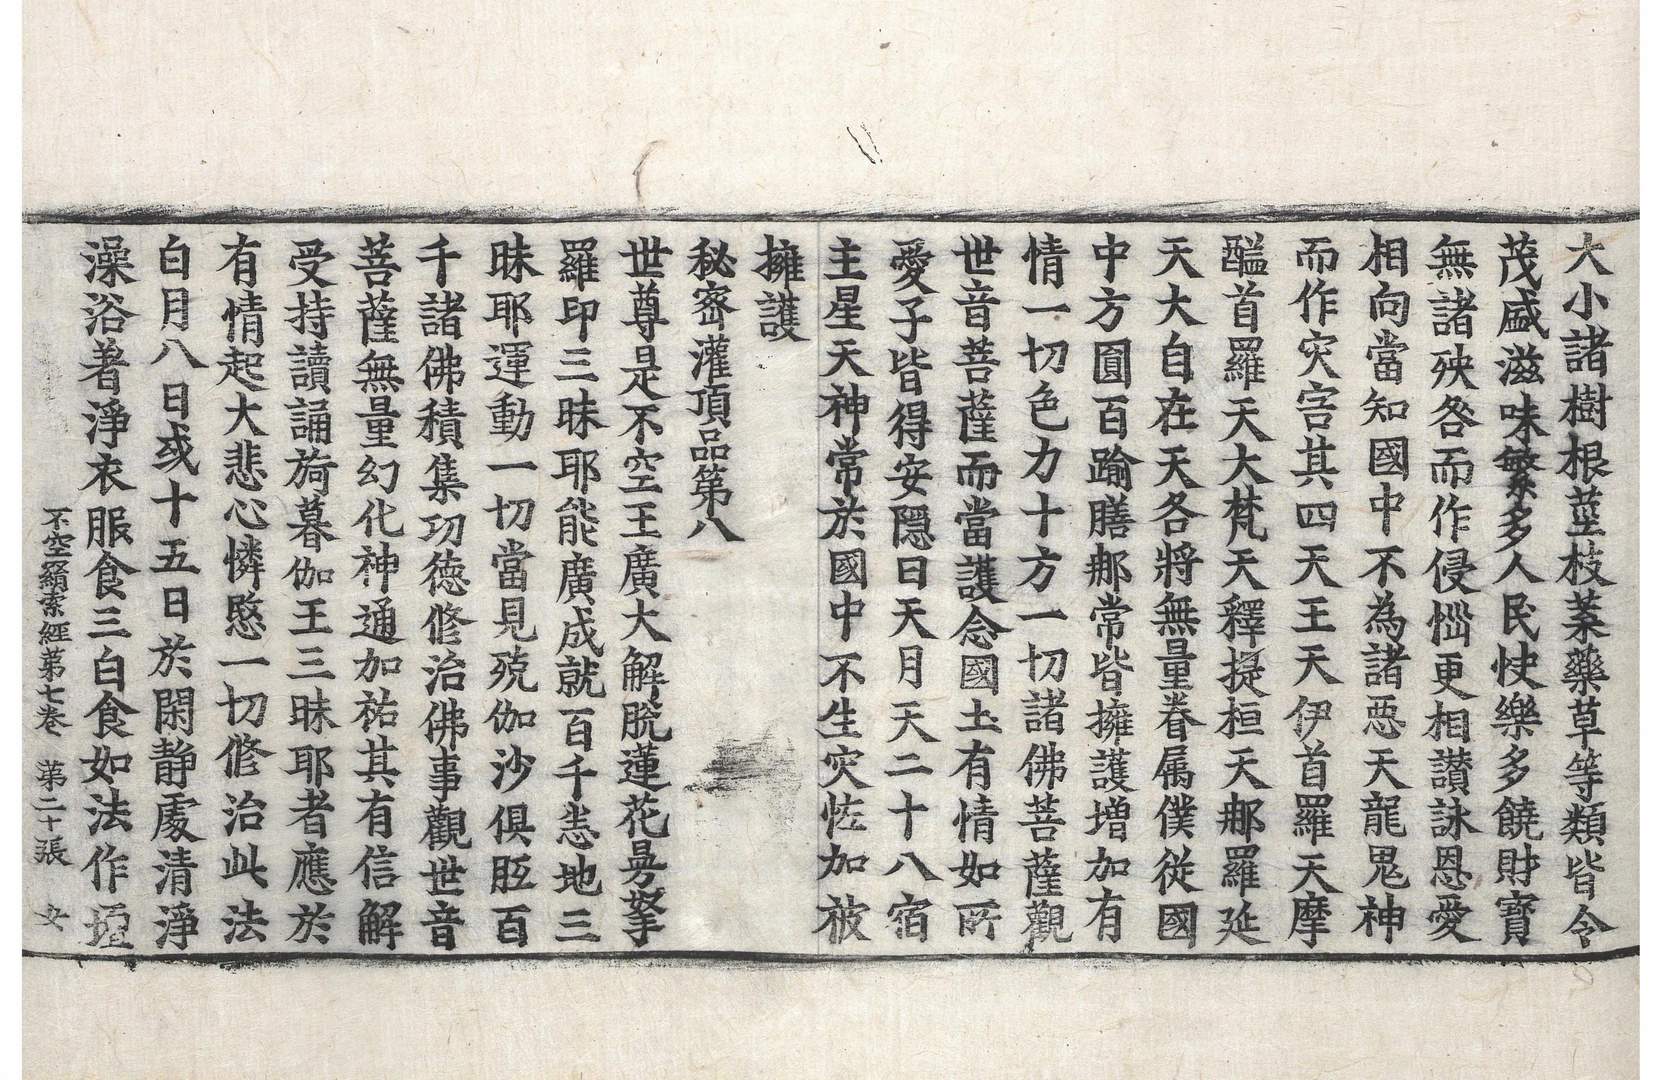 大小諸樹根莖枝葉藥草等類皆令
茂盛滋味繁多人民快樂多饒財寶
無諸殃咎而作侵惱更相讃詠恩愛
相向當知國中不為諸惡天龍鬼神
而作灾害其四天王天伊首羅天摩
醯首羅天大梵天釋提桓天那羅延
天大自在天各將無量眷属僕從國
中方圓百踰膳那常皆擁護增加有
情一切色力十方一切諸佛菩薩觀
世音菩薩而當護念國土有情如所
愛子皆得安隱日天月天二十八宿
主星天神常於國中不生灾恠加被
擁護
秘密灌頂品第八
世尊是不空王廣大解脫蓮花曼拏
羅印三昧耶能廣成就百千悉地三
昧耶運動一切當見殑伽沙俱胝百
千諸佛積集功德修治佛事觀世音
菩薩無量幻化神通加祐其有信解
受持讀誦旖暮伽王三昧耶者應於
有情起大悲心憐愍一切修治此法
白月八日或十五日於閑静處清淨
澡浴著淨衣服食三白食如法作壇
不空羂索經第七卷　第二十張　女